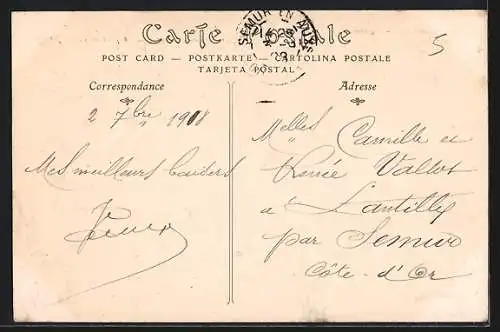 Carte Postale
POST CARD — POSTKARTE — CARTOLINA POSTALE
TARJETA POSTAL
SEMUR EN AUXOIS
5
Correspondance
Adresse
2 7bre 1908
Mes meilleurs baisers
Melles Camille et
Renée Vallot
à Lantilly
par Semur
Côte-d'Or